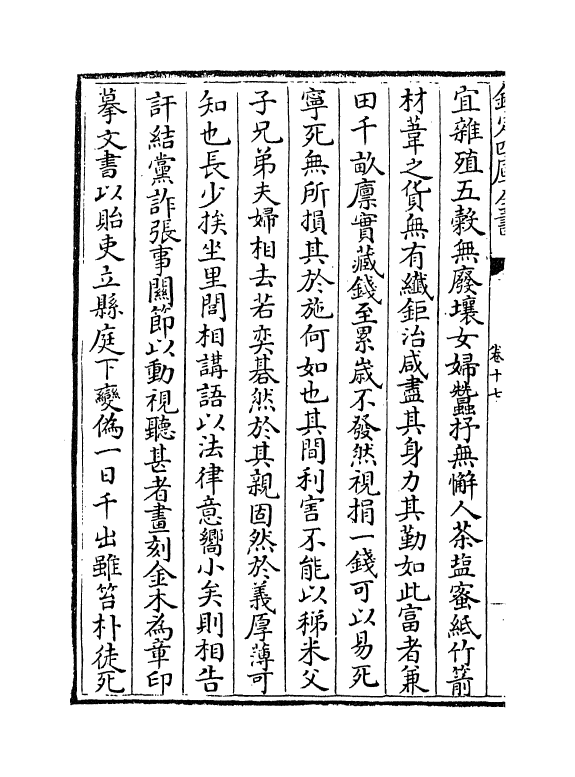 欽定四庫全書
卷十七
宜雜殖五穀無廢壤女婦蠶抒無懈人茶塩蜜紙竹箭
材葦之貨無有纖鉅治咸盡其身力其勤如此富者兼
田千畝廪實藏錢至累歲不發然視捐一錢可以易死
寧死無所損其於施何如也其間利害不能以稊米父
子兄弟夫婦相去若奕碁然於其親固然於義厚薄可
知也長少挨坐里閭相講語以法律意嚮小矣則相告
訐結黨詐張事關節以動視聽甚者畫刻金木為章印
摹文書以貽吏立縣庭下變偽一日千出雖笞朴徒死